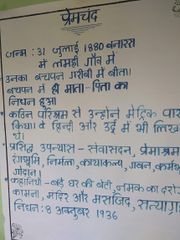 प्रेमचंद
जन्म : 31 जुलाई 1880 बनारस
में लमही गाँव में
उनका बचपन गरीबी में बीता।
बचपन में ही माता-पिता का
निधन हुआ
कठिन परिश्रम से उन्होंने मैट्रिक पास
किया। वे हिन्दी और उर्दू में भी लिख
प्रसिद्ध उपन्यास - सेवासदन, प्रेमाश्रम
रंगभूमि, निर्मला, कायाकल्प, गबन, कर्मभू
गोदान।
कहानियाँ - बड़े घर की बेटी, नमक का दरो
कामना, मंदिर और मसजिद, सत्याग्र
निधन : 8 अक्टूबर 1936